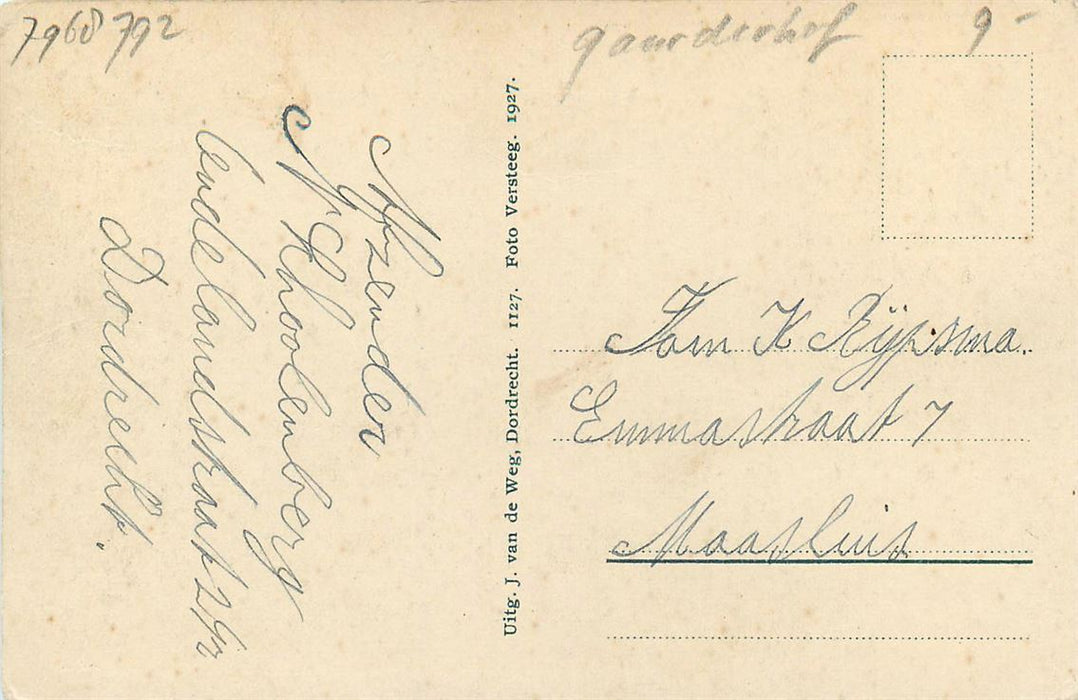 7968792
gaarderhof
9-
Afzender
N. Schoolenberg
Oudelandstraat 29
Dordrecht.
Uitg. J. van de Weg, Dordrecht. 1127. Foto Versteeg. 1927.
Fam K Rijpsma.
Emmastraat 7
Maassluis